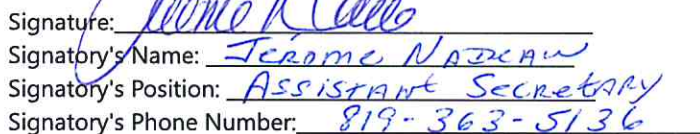 Signature:
Signatory's Name: Jerome
Signatory's Position: Assistant Secretary
Signatory's Phone Number: 819-363-5136